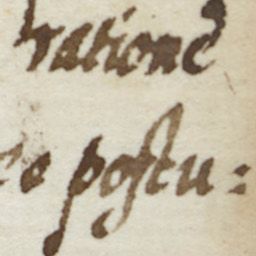 ratione
postu: